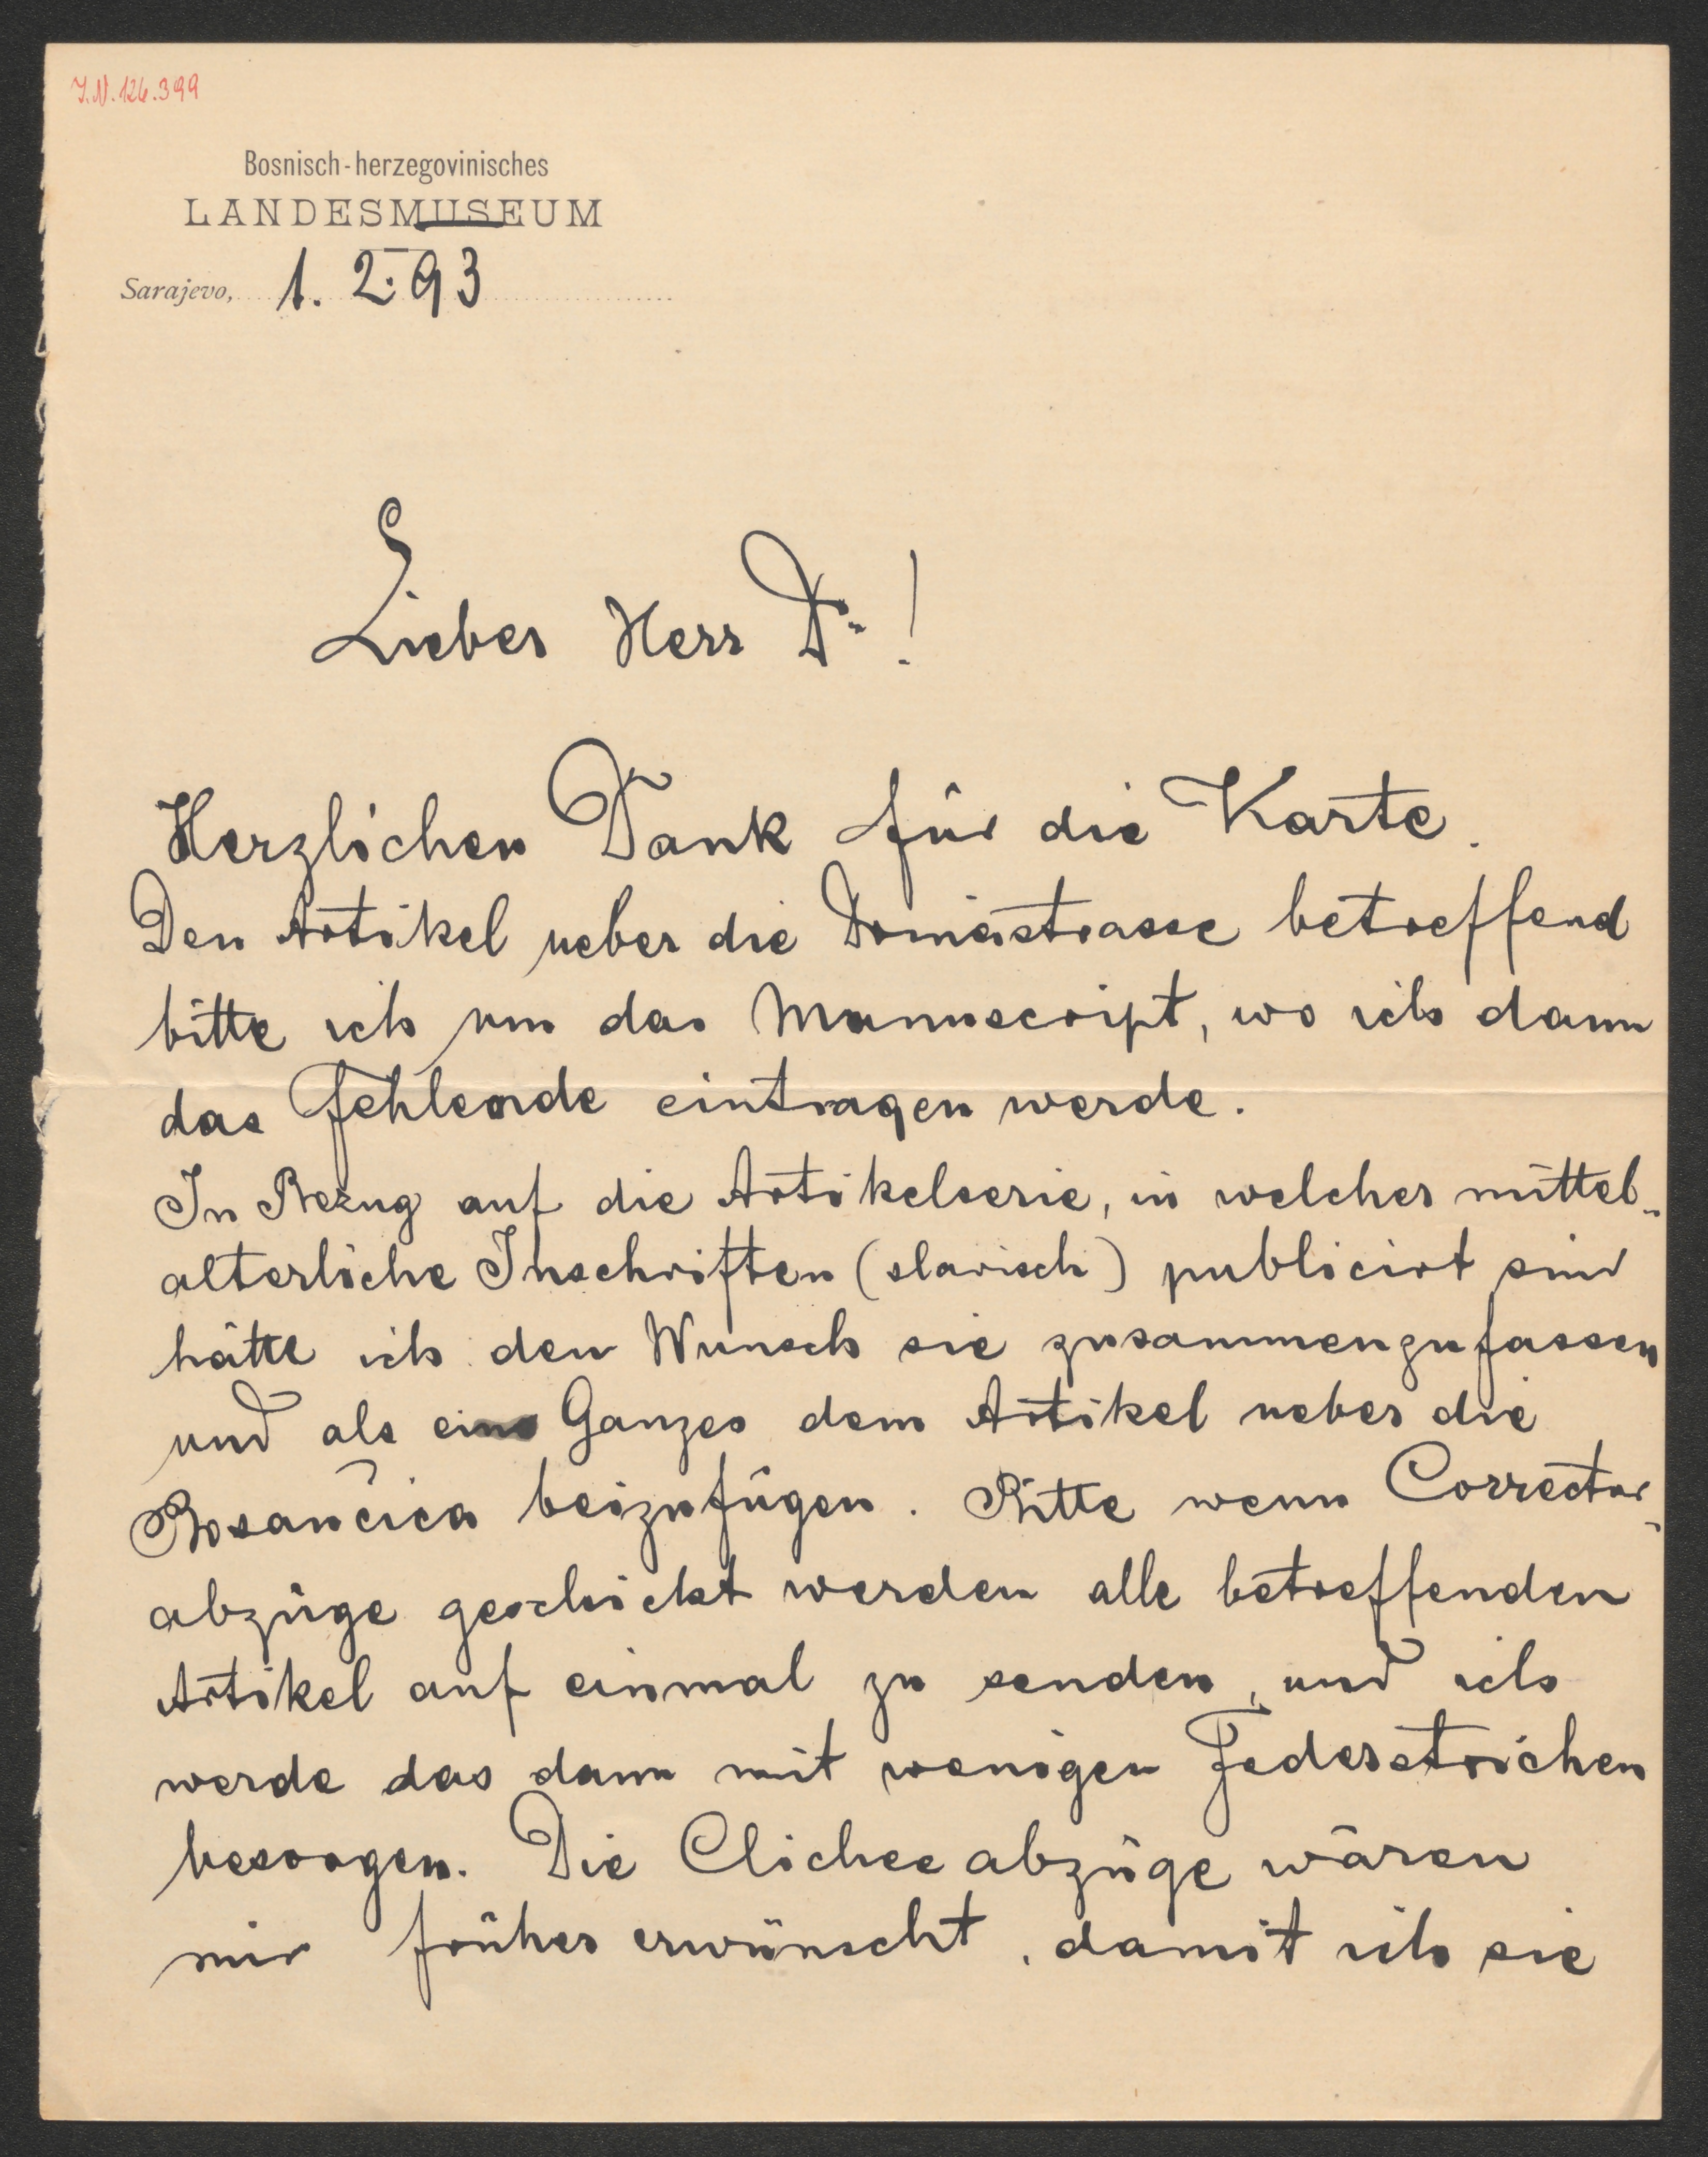 I.N. 126.399
Bosnisch-herzegovinisches
LANDESMUSEUM
Sarajevo, 1. 2. 93
Lieber Herr Dr !
Herzlichen Dank für die Karte.
Den Artikel ueber die Drinastrasse betreffend
bitte ich um das Manuscript, wo ich dann
das Fehlende eintragen werde.
In Bezug auf die Artikelserie, in welcher mittel-
alterliche Inschriften (slavisch) publicirt sind
hätte ich den Wunsch sie zusammenzufassen
und als ein Ganzes dem Artikel ueber die
Bosančica beizufügen. Bitte wenn Correctur-
abzüge geschickt werden alle betreffenden
Artikel auf einmal zu senden, und ich
werde das dann mit wenigen Federstrichen
besorgen. Die Clicheeabzüge wären
mir früher erwünscht, damit ich sie